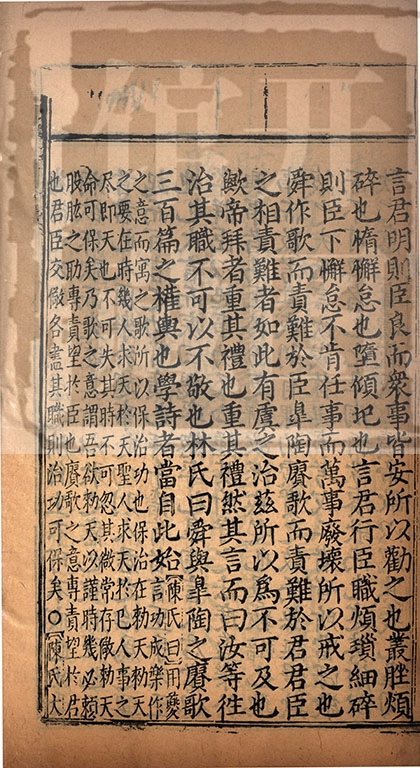 言君明則臣良而衆事皆安所以勸之也叢脞煩
碎也惰懈怠也墮傾圮也言君行臣職煩瑣細碎
則臣下懈怠不肯任事而萬事廢壞所以戒之也
舜作歌而責難於臣皐陶賡歌而責難於君君臣
之相責難者如此有虞之治玆所以爲不可及也
歟帝拜者重其禮也重其禮然其言而曰汝等徃
治其職不可以不敬也林氏曰舜與皐陶之賡歌
三百篇之權輿也學詩者當自此始陳氏曰用夔
言功成樂作
之意而寓之歌所以保治功也保治在勑天勑天
之要在時幾人求天於天聖人求天於巳人事之
尽即天也不可失其時不可忽其微常存儆勑天
命可保矣乃歌之意謂吾欲勑天以謹時幾必頼
股肱之助專責望於臣也賡歌之意專責望於君
也君臣交儆各盡其職則治功可保矣○陳氏大